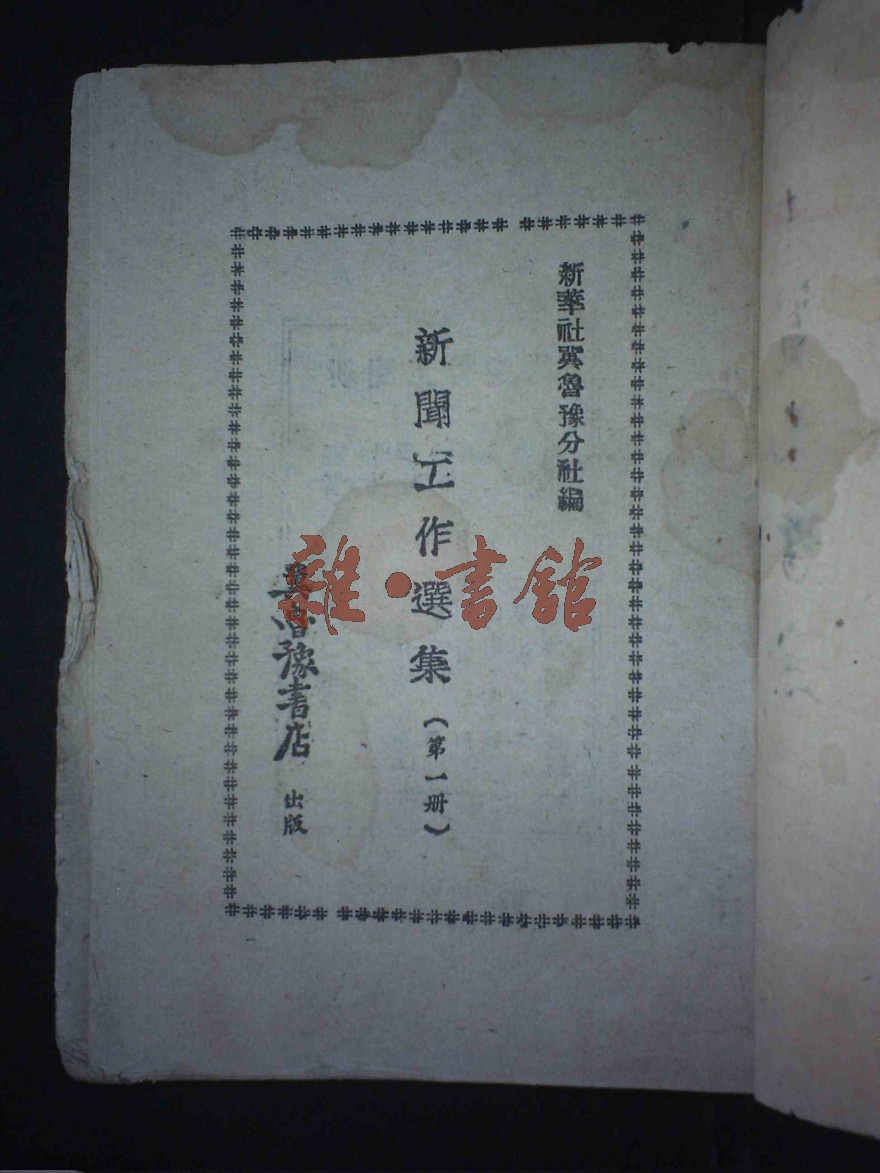 新華社冀魯豫分社編
新聞工作選集（第一册）
冀魯豫書店 出版
雜·書館